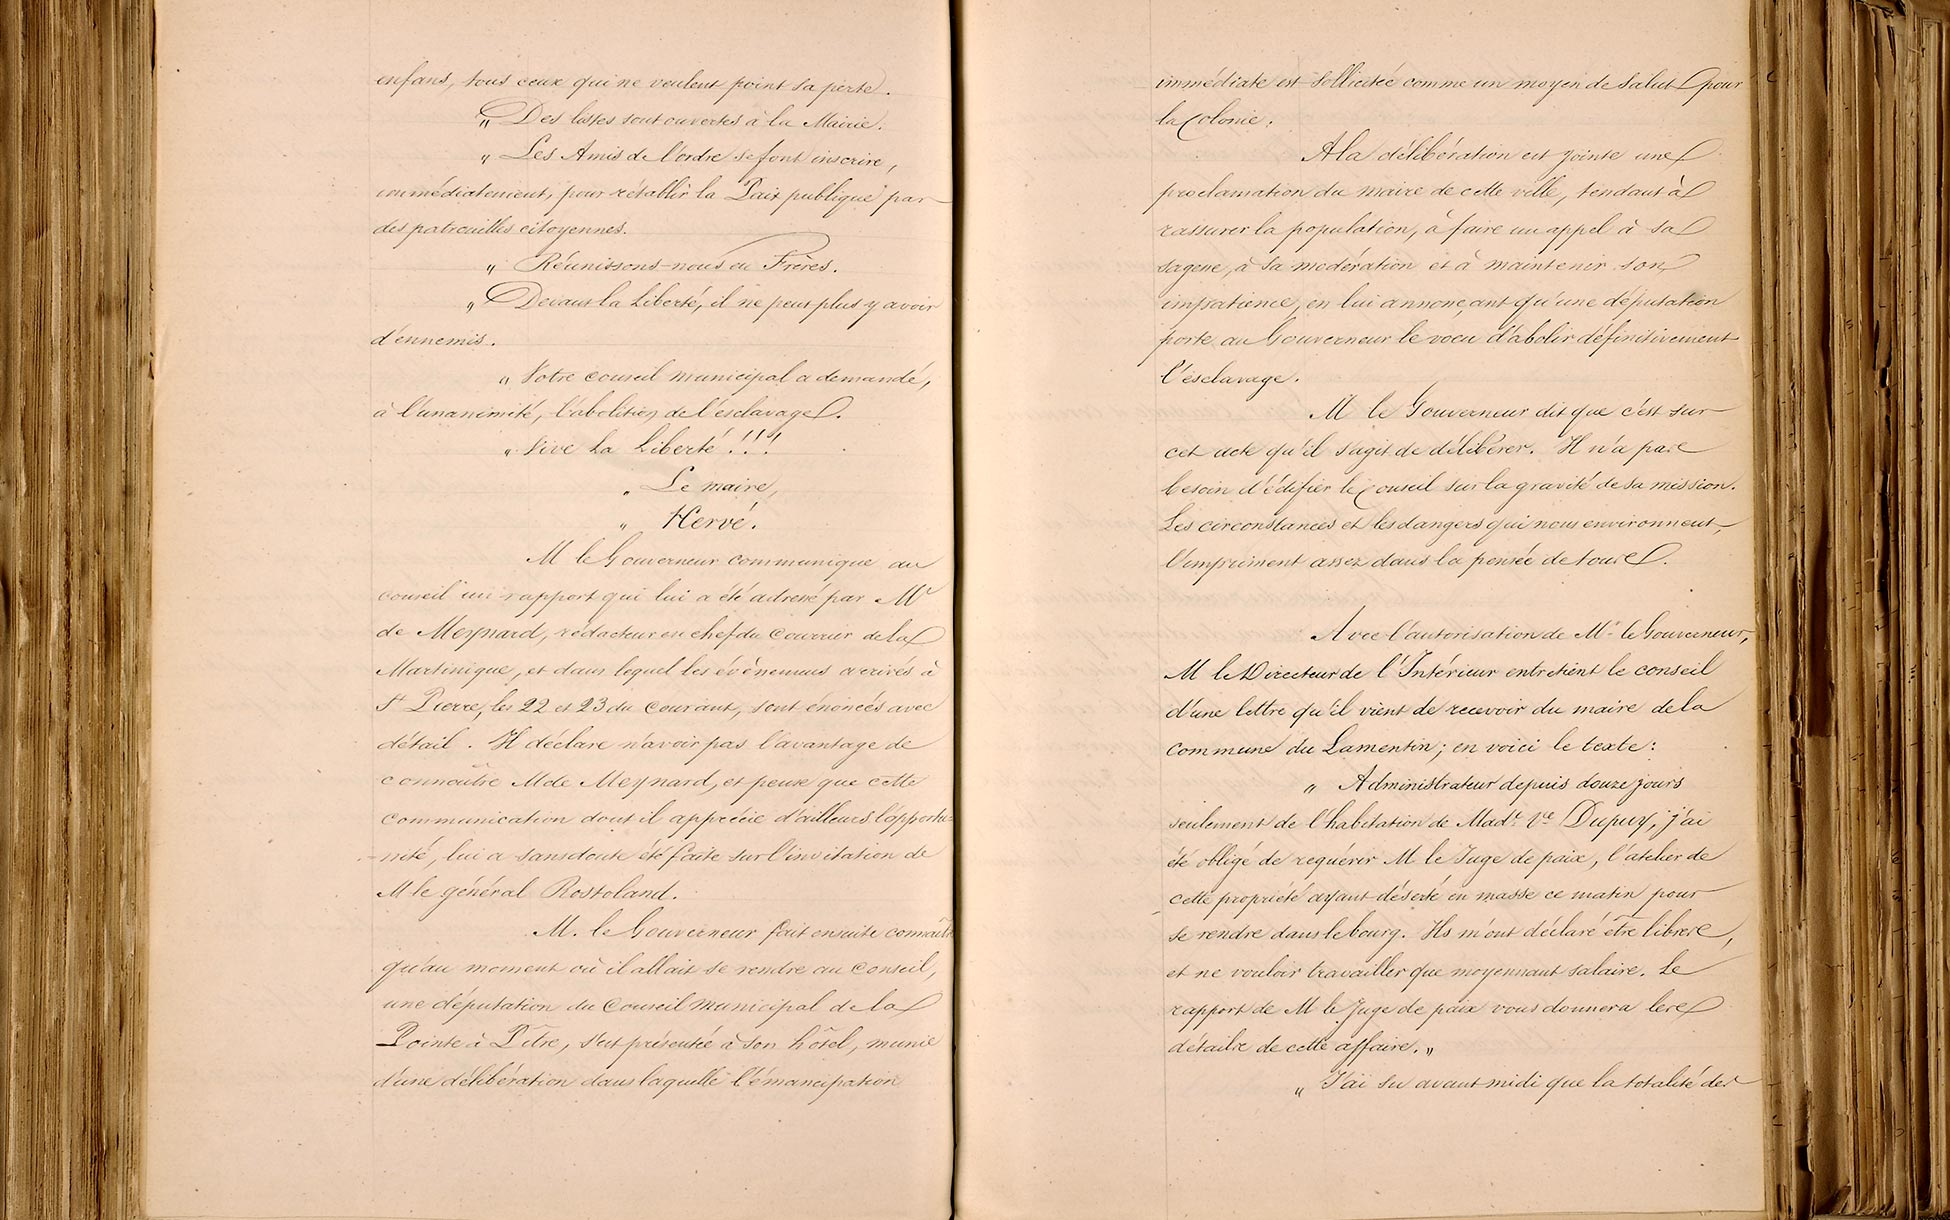 enfans, tous ceux qui ne veulent point sa perte.
„ Des listes sont ouvertes à la Mairie.
„ Les Amis de l'ordre se font inscrire,
immédiatement, pour rétablir la Paix publique par
des patrouilles citoyennes.
„ Réunissons-nous en Frères.
„ Devant la Liberté, il ne peut plus y avoir
d'ennemis.
„ Votre conseil municipal a demandé,
à l'unanimité, l'abolition de l'esclavage.
„ Vive la Liberté !!!
„ Le maire,
„ Hervé.
M le Gouverneur communique au
conseil un rapport qui lui a été adressé par Mr
de Meynard, rédacteur en chef du Courrier de la
Martinique, et dans lequel les évènemens arrivés à
St Pierre, les 22 et 23 du courant, sont énoncés avec
détail. Il déclare n'avoir pas l'avantage de
connaître M de Meynard, et pense que cette
communication dont il apprécie d'ailleurs l'opportu-
-nité, lui a sans doute été faite sur l'invitation de
M le général Rostoland.
M. le Gouverneur fait ensuite connaître
qu'au moment où il allait se rendre au Conseil,
une députation du Conseil municipal de la
Pointe à Pitre, s'est présentée à son hôtel, munie
d'une délibération dans laquelle l'émancipation
immédiate est sollicitée comme un moyen de salut pour
la Colonie.
A la délibération est jointe une
proclamation du maire de cette ville, tendant à
rassurer la population, à faire un appel à sa
sagesse, à sa modération et à maintenir son
impatience, en lui annonçant qu'une députation
porte au Gouverneur le voeu d'abolir définitivement
l'esclavage.
M le Gouverneur dit que c'est sur
cet acte qu'il s'agit de délibérer. Il n'a pas
besoin d'édifier le Conseil sur la gravité de sa mission.
Les circonstances et les dangers qui nous environnent,
l'impriment assez dans la pensée de tous.
Avec l'autorisation de Mr le Gouverneur,
M le Directeur de l'Intérieur entretient le conseil
d'une lettre qu'il vient de recevoir du maire de la
commune du Lamentin; en voici le texte:
„ Administrateur depuis douze jours
seulement de l'habitation de Made Ve Dupuy, j'ai
été obligé de requérir M le Juge de paix, l'atelier de
cette propriété ayant déserté en masse ce matin pour
se rendre dans le bourg. Ils m'ont déclaré être libres,
et ne vouloir travailler que moyennant salaire. Le
rapport de M le Juge de paix vous donnera les
détails de cette affaire. „
„ J'ai su avant midi que la totalité des